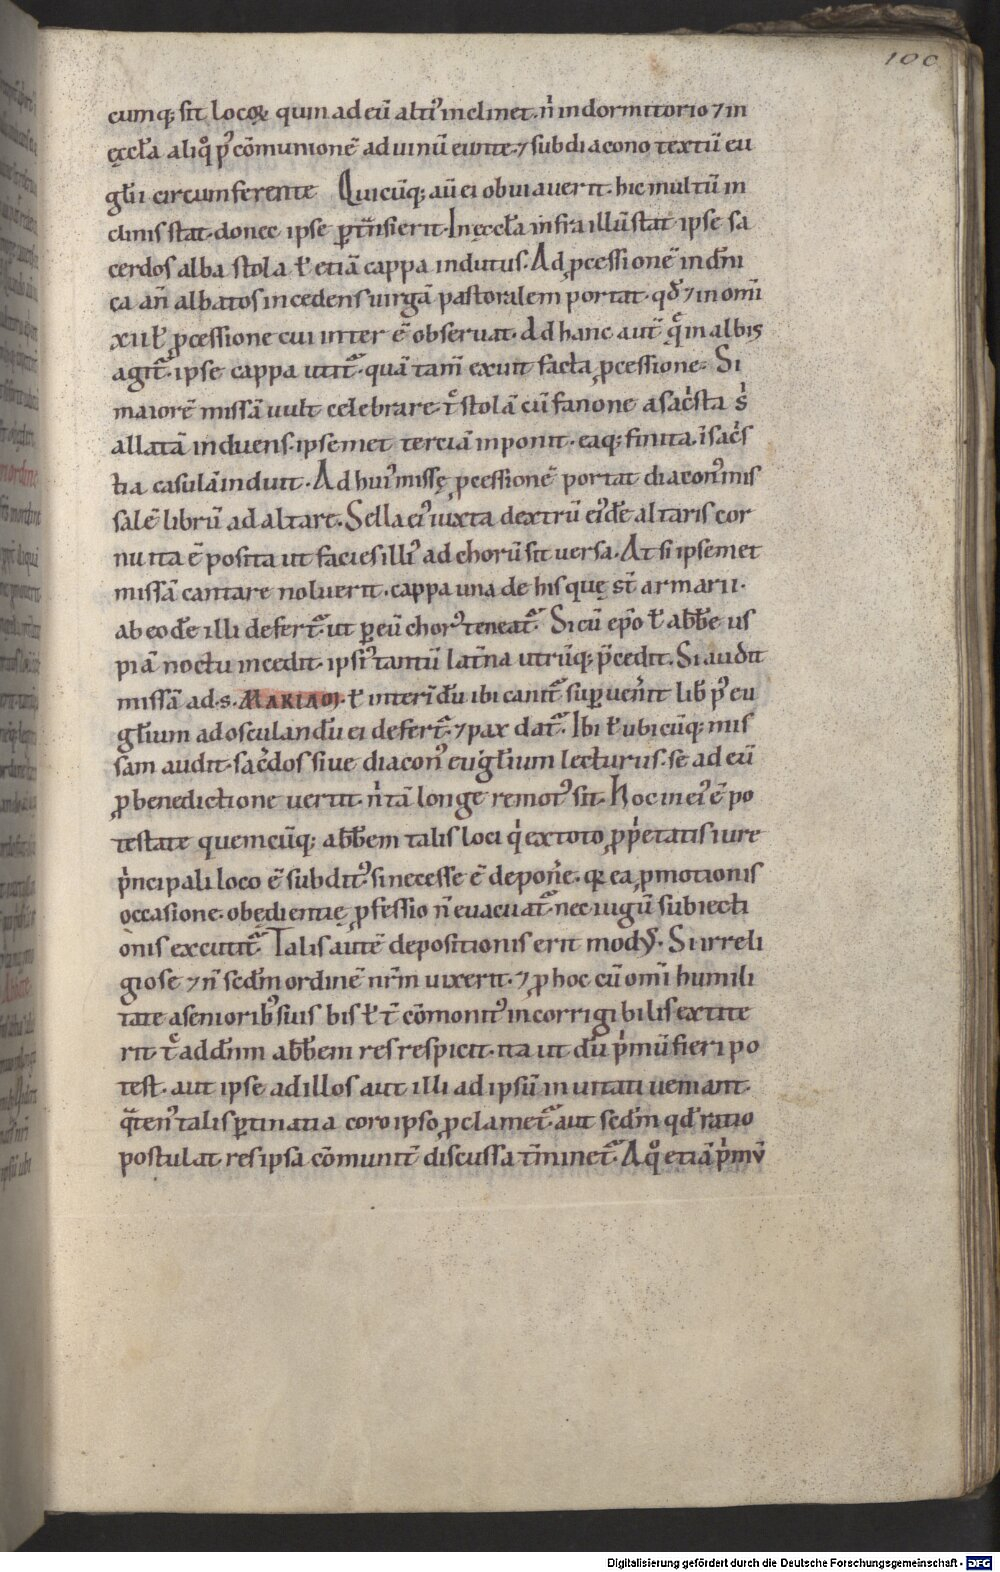 100
cumq; sit locoꝝ quin ad eū alti᷒ inclinet· n̍ in dormitorio ⁊ in
ęccƚa aliqͦ p᷒ cōmunionē ad uinū eunte· ⁊ subdiacono textū eu
gƚii circumferente Quicūq; aū ei obuiauerit· hic multū in
clinis stat· donec ipse ꝑtͣnsierit· In ęccƚa infra illū stat ipse sa
cerdos alba stola ƚ etiā cappa indutus· Ad ꝓcessionē in dn̄i
ca an̄ albatos incedens uirgā pastoralem portat· qđ ⁊ in om̄i
xii ƚ ꝓcessione cui inter ē obseruat· Ad hanc aut̄ q̄ in albis
agit᷑· ipse cappa utit᷑· quā tam̄ exuit facta ꝓcessione· Si
maiorē missā uult celebrare t̄ stolā cū fanone a sac̍sta s̍
allatā induens· ipsemet terciā inponit· eaq; finita· ī sac̍s
tia casulā induit· Ad hui᷒ missę ꝓcessionē portat diacon᷒ mis
salē librū ad altare· Sella ei᷒ iuxta dextrū ei᷒đe altaris cor
nu ita ē posita ut facies illi᷒ ad chorū sit uersa· At si ipsemet
missā cantare noluerit· cappa una de his quę st̄ armarii·
ab eođe illi defert᷑· ut ꝑ eū chor᷒ teneat᷑· Si cū ep̄o ƚ abƀe us
piā noctu incedit· ipsi᷒ tantū lat̍na utrūq; p̄cedit· Si audit
missā ad· s· MARIAM· ƚ interī dū ibi canit᷑ superuen̍it lib̍ p᷒ eu
gƚium ad osculandū ei defert᷑· ⁊ pax dat᷑· Ibi ƚ ubicūq; mis
sam audit· sac̍dos siue diacon᷒ euḡƚium lecturus· se ad eū
ꝓ benedictione uertit· n̍ tā longe remot᷒ sit· Hoc in ei᷒ ē po
testate quemcūq; abƀem talis loci q̍ ex toto ꝓp̍etatis iure
p̍ncipali loco ē subdit᷒· si necesse ē depon̍e· qꝛ ea ꝓmotionis
occasione· obędientię ꝓfessio n̄ euacuat᷑· nec iugū subiecti
onis excutit᷑· Talis autē depositionis erit modꝰ· Si irreli
giose ⁊ n̄ secđm ordinē nr̄m uixerit· ⁊ ꝓ hoc cū om̄i humili
tate a seniorib᷒ suis bis ƚ t̄ cōmonit᷒ incorrigibilis extite
rit t̄c ad dn̄m abƀem res respicit· ita ut dū p̍mū fieri po
test· aut ipse ad illos aut illi ad ipsū inuitati ueniant·
qͣten᷒ talis ꝑtinatia coro ipso ꝓclamet᷑ aut secđm qđ ratio
postulat res ipsa cōmunit̄ discussa t̄minet᷑· A qͦ etiā p̍mv̄
Digitalisierung gefördert durch die Deutsche Forschungsgemeinschaft - DFG